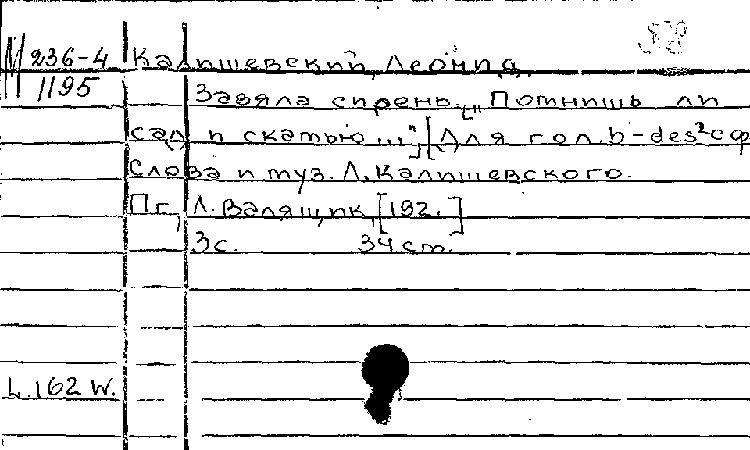 М 236-4 Калишевский, Леонид.
1195 Завяла сирень. ["Помнишь ли
сад и скамью..."] [Для гол. b-des² с ф
Слова и муз. Л. Калишевского.
Пг., Л. Валящик, [192.]
3 с. 34 см.
L. 162 W.